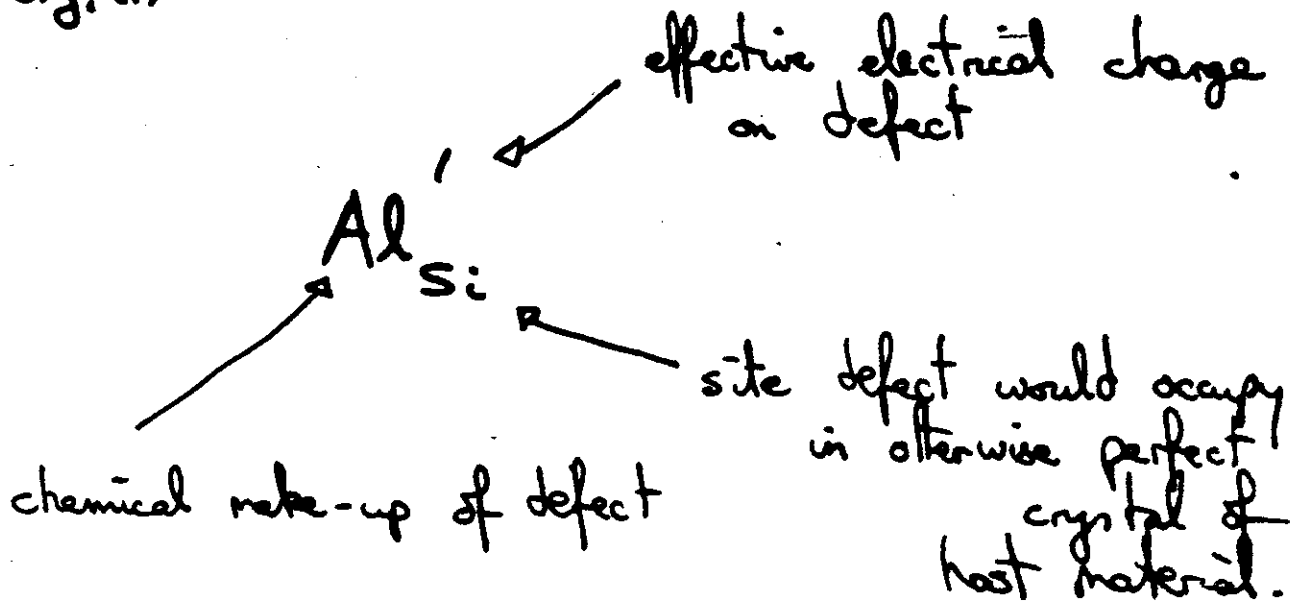 effective electrical charge
on defect
Al'Si
site defect would occupy
in otherwise perfect
crystal of
host material.
chemical make-up of defect